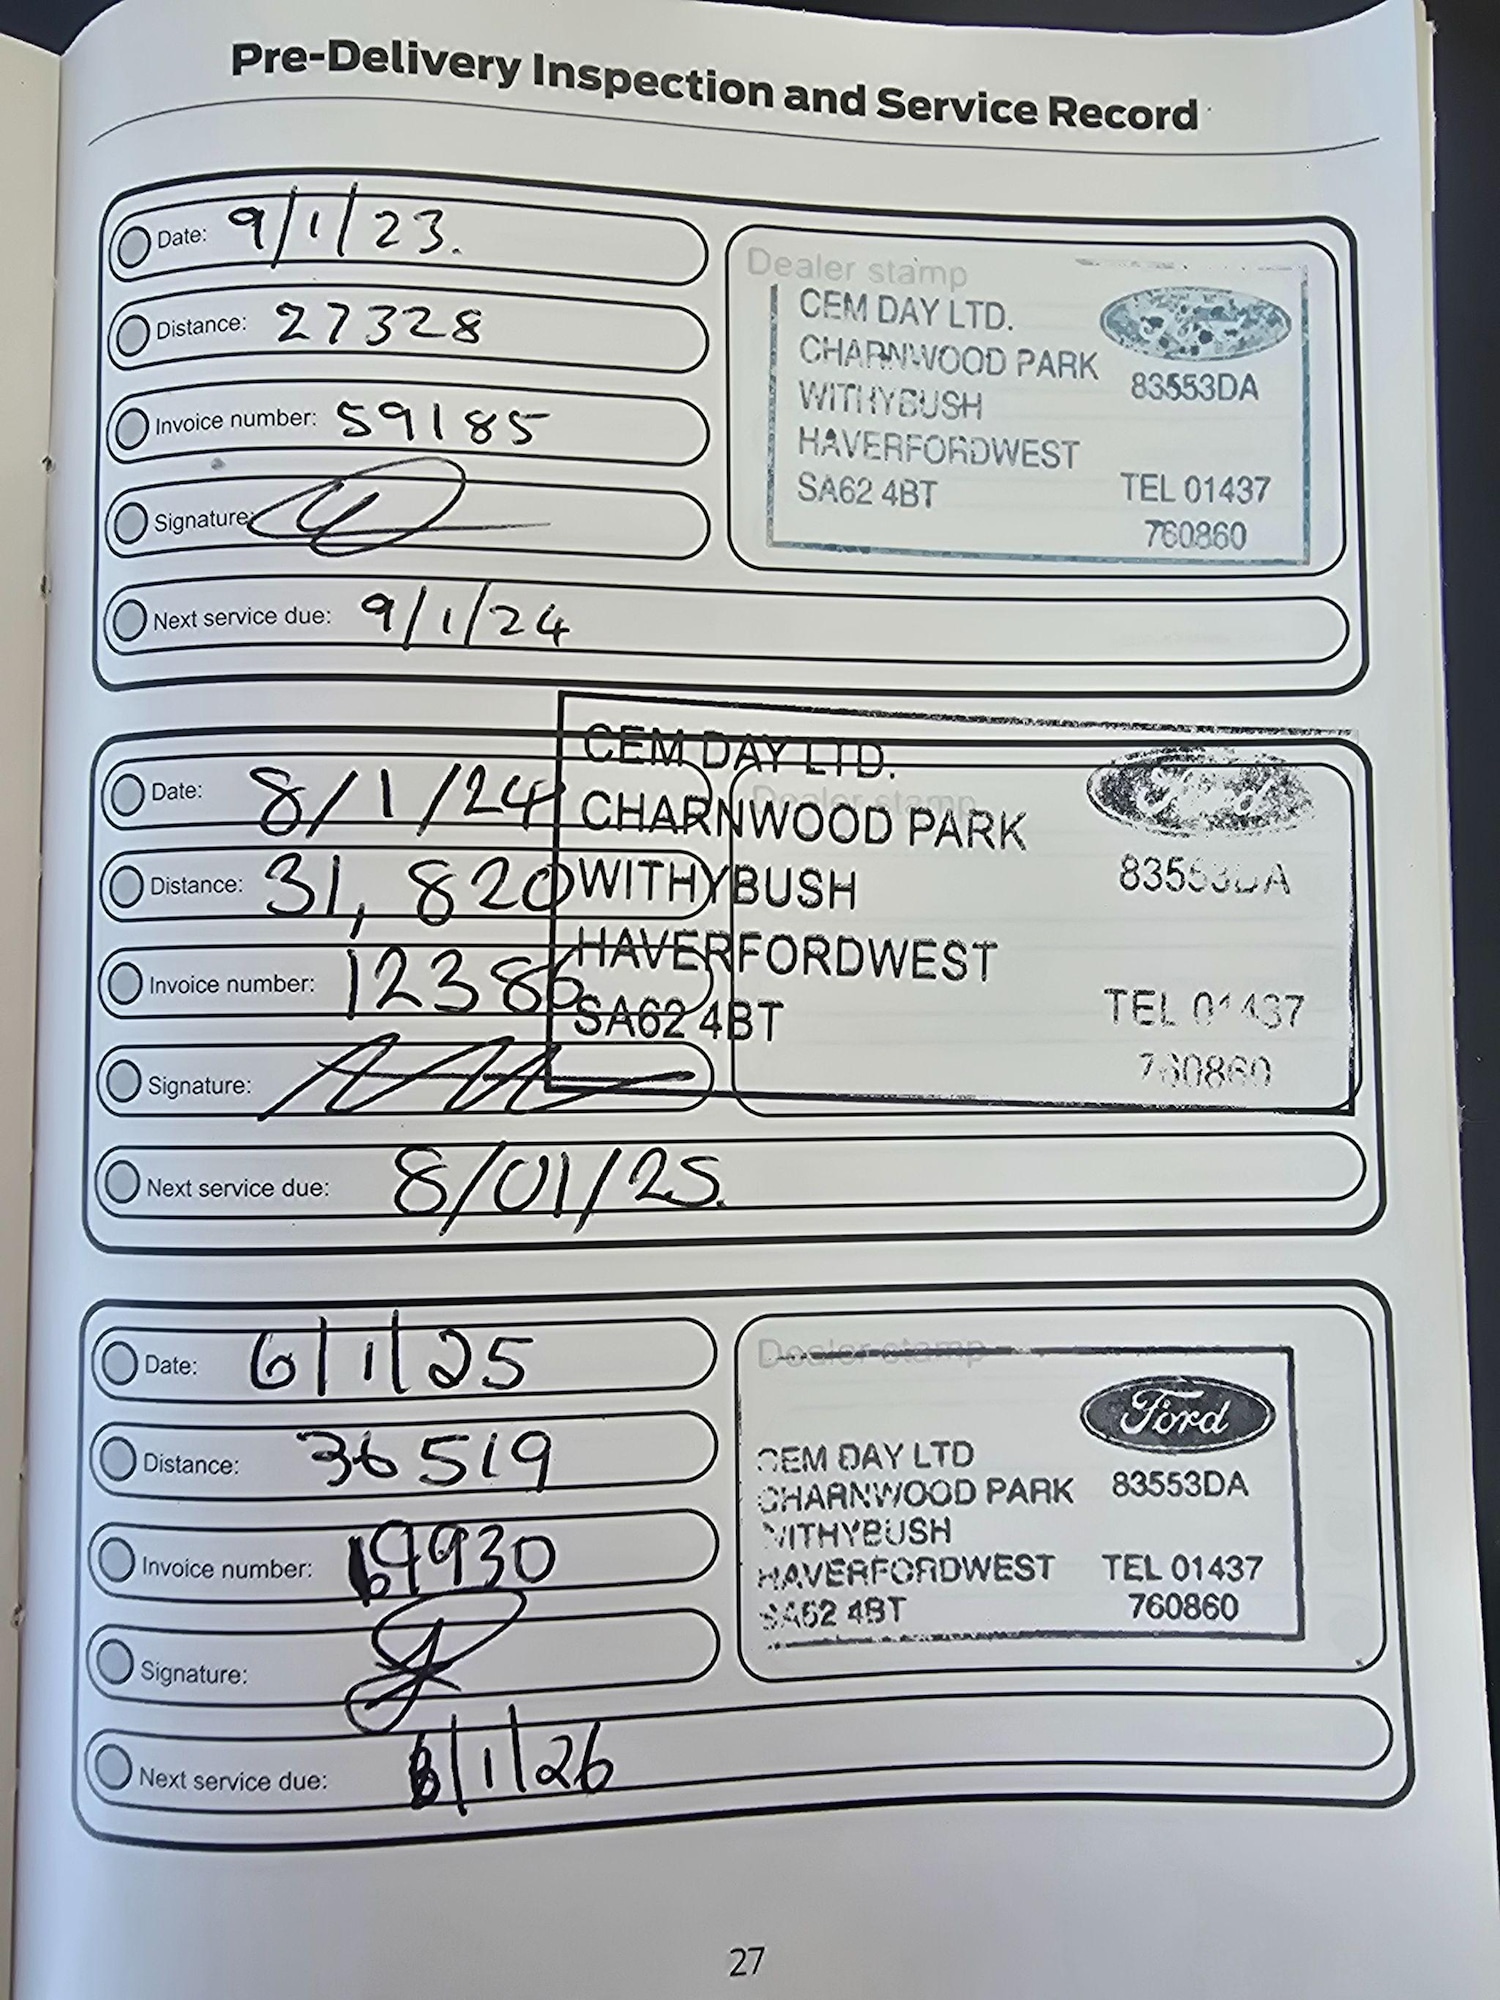 Pre-Delivery Inspection and Service Record
Date: 9/1/23.
Distance: 27328
Invoice number: 59185
Signature:
Next service due: 9/1/24
Dealer stamp
CEM DAY LTD.
CHARNWOOD PARK
83553DA
WITHYBUSH
HAVERFORDWEST
SA62 4BT
TEL 01437
760860
Date: 8/1/24
Distance: 31,820
Invoice number: 12386
Signature:
Next service due: 8/01/25.
Dealer stamp
CEM DAY LTD.
Ford
CHARNWOOD PARK
WITHYBUSH
83553DA
HAVERFORDWEST
SA62 4BT
TEL 01437
760860
Date: 6/1/25
Distance: 36519
Invoice number: 19930
Signature:
Next service due: 6/1/26
Dealer stamp
Ford
CEM DAY LTD
CHARNWOOD PARK
83553DA
WITHYBUSH
HAVERFORDWEST
TEL 01437
SA62 4BT
760860
27